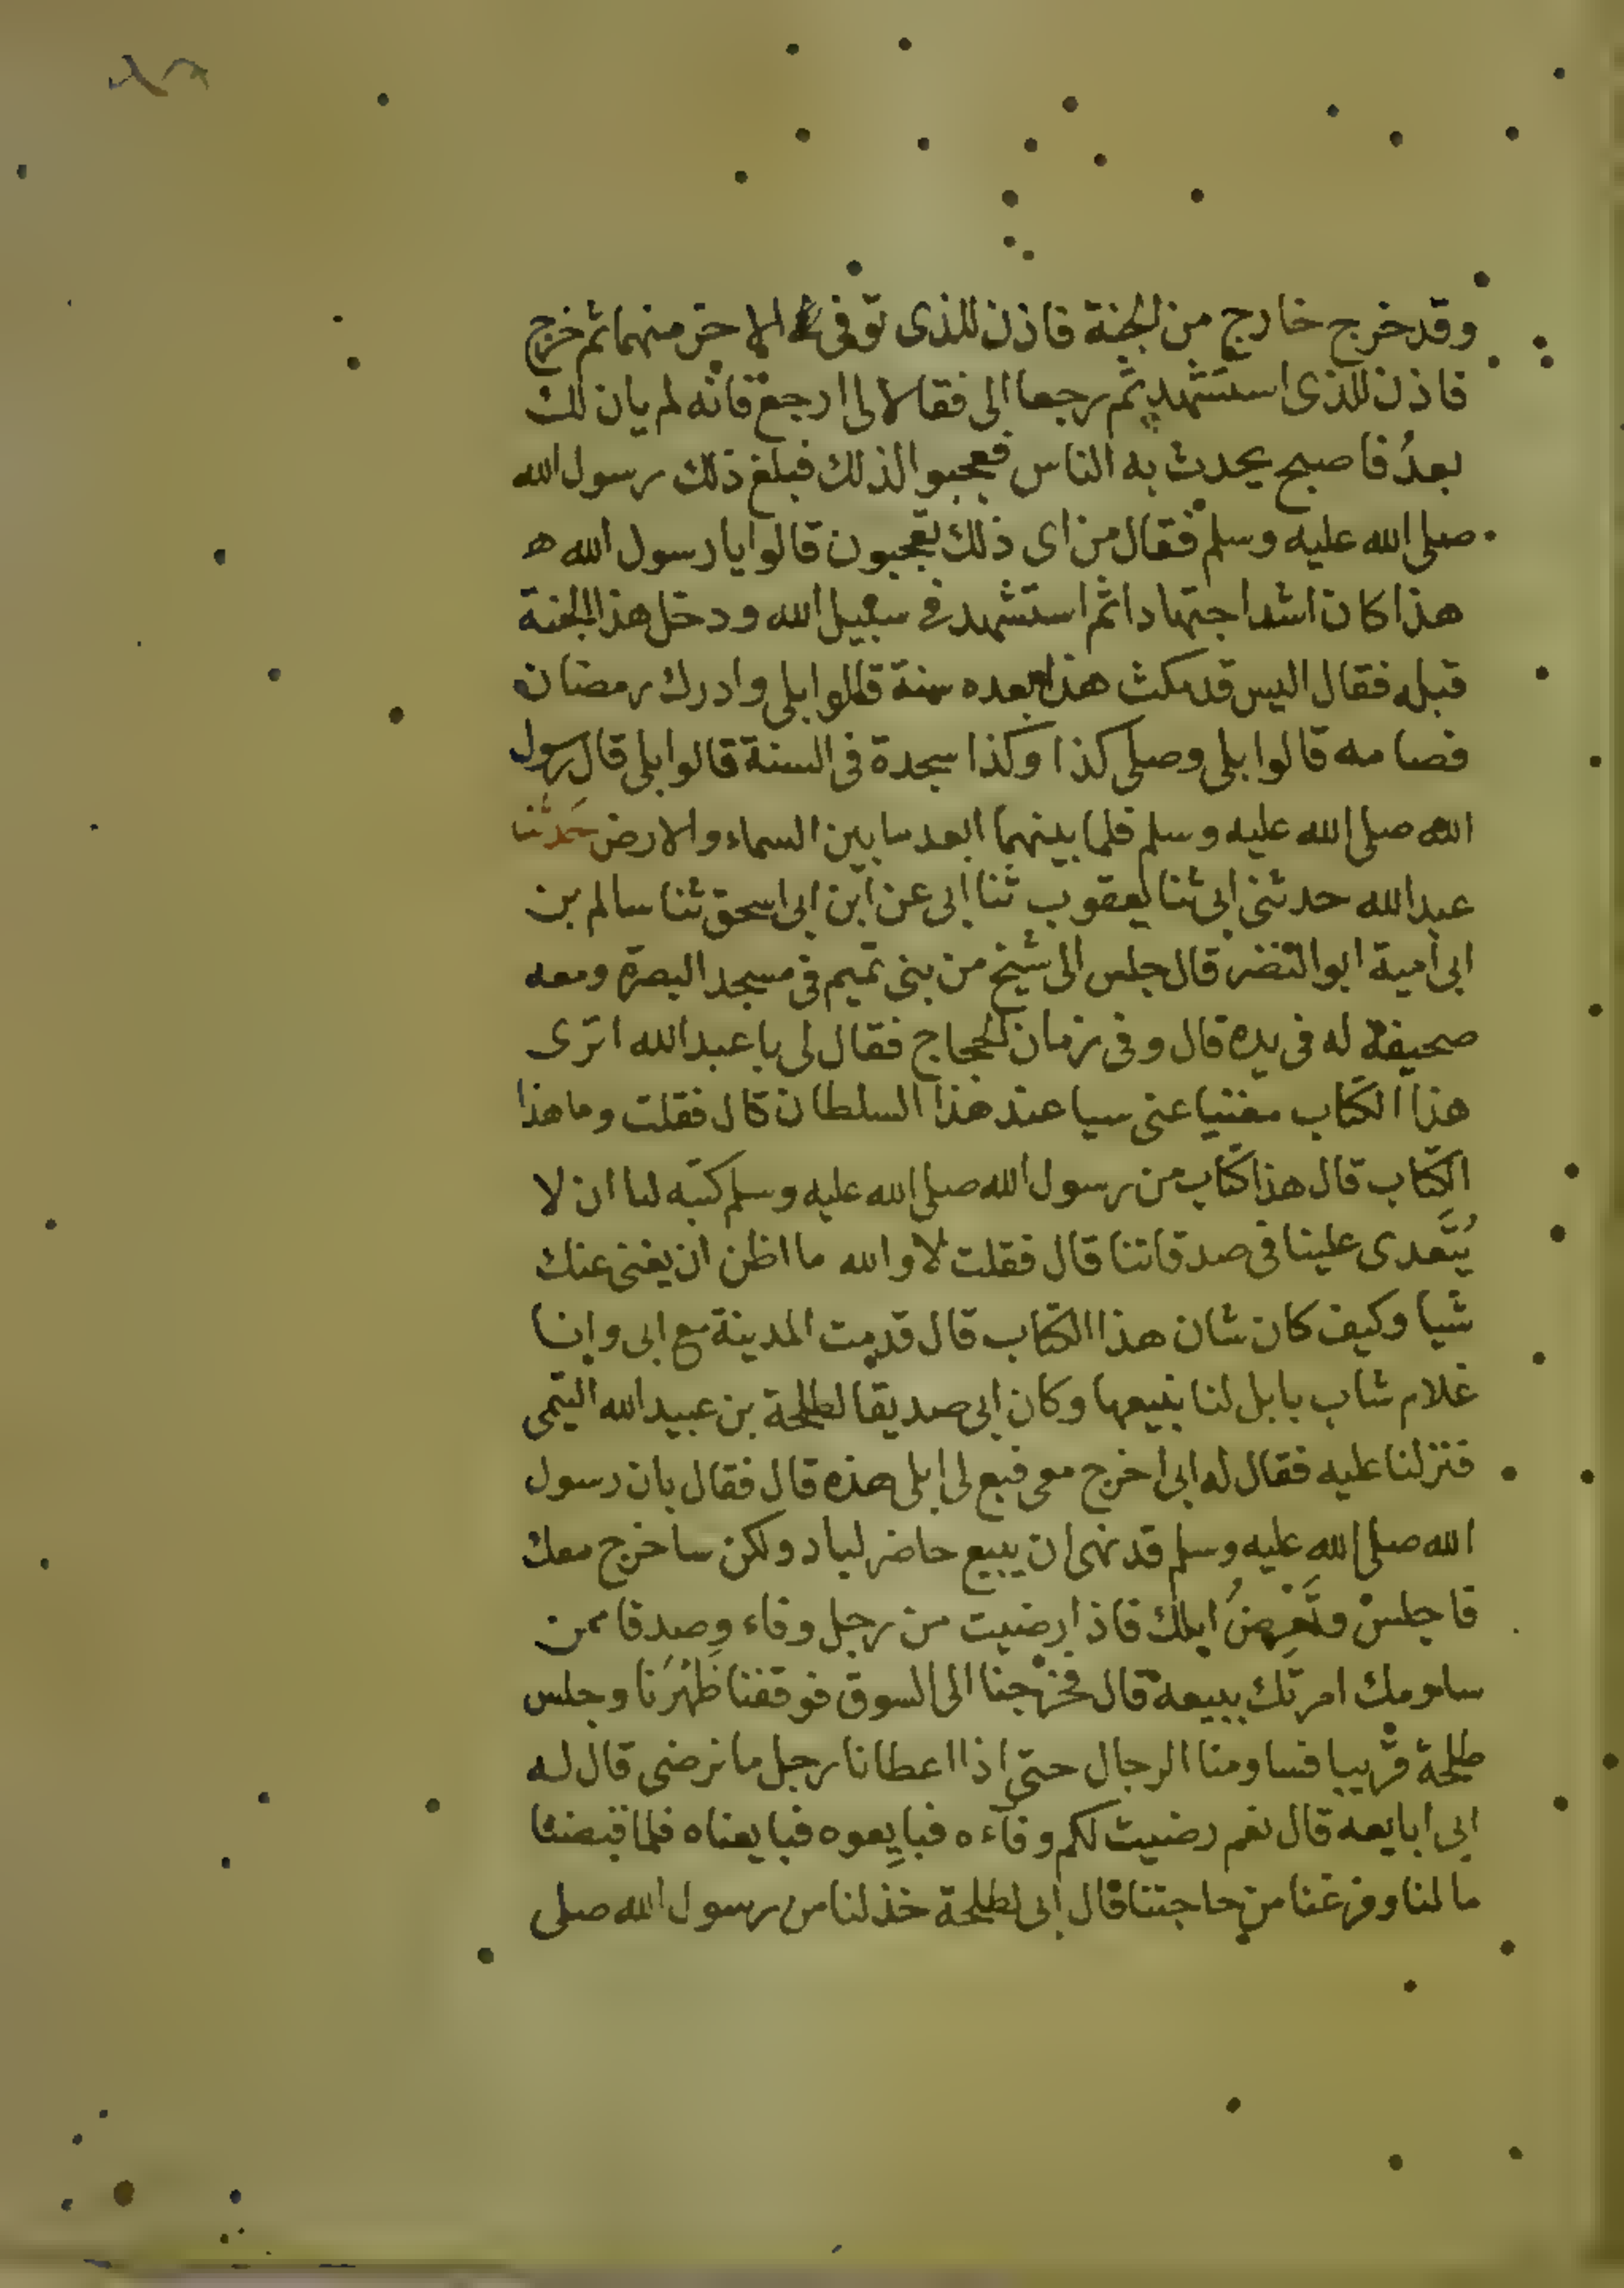 وقد خرج خارج من الجنة فاذن للذى توفى الاخر منهما ثم خرج
فاذن للذى استشهد ثم رجعا الى فقالا لى ارجع فانه لم يان لك
بعدُ فاصبح يحدث به الناس فعجبوا لذلك فبلغ ذلك رسول الله
صلى الله عليه وسلم فقال من اى ذلك تعجبون قالوا يا رسول الله ه
هذا كان اشد اجتهادا ثم استشهد فى سبيل الله ودخل هذا الجنة
قبله فقال اليس قد مكث هذا بعده سنة قالوا بلى وادرك رمضان
فصامه قالوا بلى وصلى كذا وكذا سجدة فى السنة قالوا بلى قال رسول
الله صلى الله عليه وسلم فلما بينهما ابعد ما بين السماء والارض حَدثنا
عبد الله حدثنى ابى ثنا يعقوب ثنا ابى عن ابن ابى اسحق ثنا سالم بن
ابى امية ابو النضر قال جلس الى شيخ من بنى تميم فى مسجد البصرة ومعه
صحيفة له فى يده قال وفى زمان الحجاج فقال لى يا عبد الله اترى
هذا الكتاب مغنيا عنى سيا عند هذا السلطان قال فقلت وما هذا
الكتاب قال هذا كتاب من رسول الله صلى الله عليه وسلم كتبه لنا ان لا
يُتَعدى علينا فى صدقاتنا قال فقلت لا والله ما اظن ان يغنى عنك
شيا وكيف كان شان هذا الكتاب قال قدمت المدينة مع ابى وانا
غلام شاب بابل لنا نبيعها وكان ابى صديقا لطلحة بن عبيد الله التيمى
فنزلنا عليه فقال له ابى اخرج معى فبع لى ابلى هذه قال فقال بان رسول
الله صلى الله عليه وسلم قد نهى ان يبيع حاضر لباد ولكن ساخرج معك
فاجلسْ وتَعْرِضُ ابلك فاذا رضيت من رجل وفاء وصدقا ممن
ساومك امرتك ببيعه قال فخرجنا الى السوق فوقفنا ظُهْرَنا وجلس
طلحة قريبا فساومنا الرجال حتى اذا اعطانا رجل ما نرضى قال له
ابى ابايعه قال نعم رضيت لكم وفاءه فبايِعوه فبايعناه فلما قبضنا
ما لنا وفرغنا من حاجتنا قال ابى لطلحة خذ لنا من رسول الله صلى